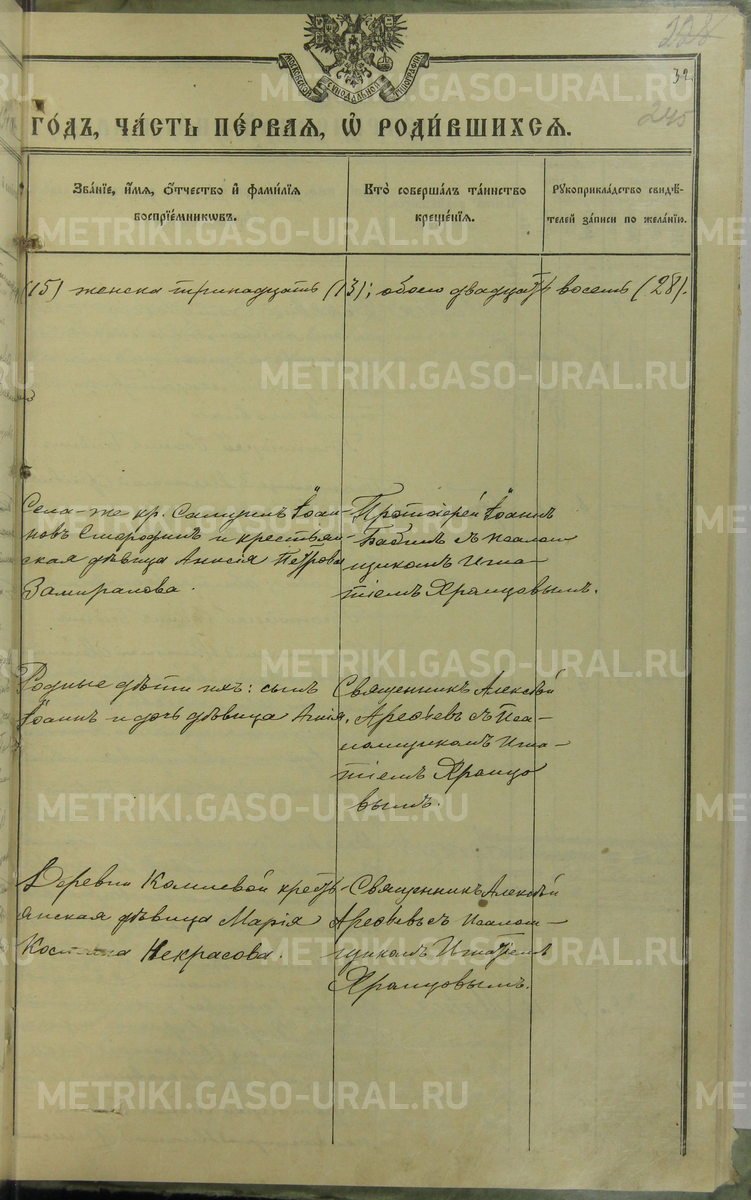 228
МОСКОВСКОЙ СѴНОДАЛЬНОЙ ТИПОГРАФІИ
32.
245
ГО́ДЪ, ЧА́СТЬ ПЕ́РВАЯ, Ѡ҆ РОДИ́ВШИХСЯ.
Зва́нїе, и҆́мя, ѻ҆́тчество и҆ фами́лїя
воспрїе́мникѡвъ.
Кто̀ соверша́лъ та́инство
креще́нїя.
Рꙋкоприкла́дство свидѣ́-
телей за́писи по жела́нїю.
(15) женска тринадцать (13); обоего двадцать восемь (28).
Села-же кр. Самуилъ Іоан-
новъ Смородинъ и крестьян-
ская дѣвица Анисія Петрова
Замиралова.
Протоіерей Іоаннъ
Бабинъ съ псалом-
щикомъ Игна-
тіемъ Храмцовымъ.
Родные дѣти ихъ: сынъ
Іоаннъ и дочь дѣвица Агнія.
Священникъ Алексѣй
Арефьевъ съ Псал-
омщикомъ Игна-
тіемъ Храмцо
вымъ.
Деревни Комлевой кресть-
янская дѣвица Марія
Некрасова.
Священникъ Алексѣй
Арефьевъ съ псалом-
щикомъ Игнатіемъ
Храмцовымъ.
METRIKI.GASO-URAL.RU